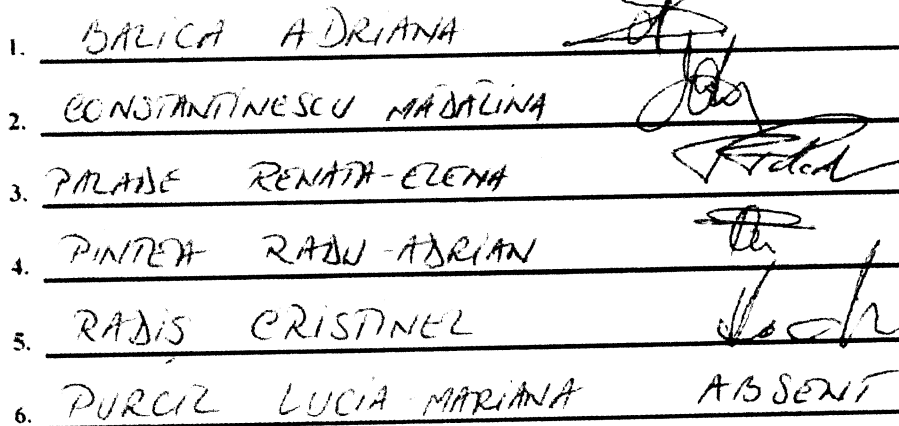 1. BALICA ADRIANA
2. CONSTANTINESCU MĂDĂLINA
3. PALADE RENATA-ELENA
4. PINTEA RADU-ADRIAN
5. RADIŞ CRISTINEL
6. PURCEL LUCIA-MARIANA ABSENT